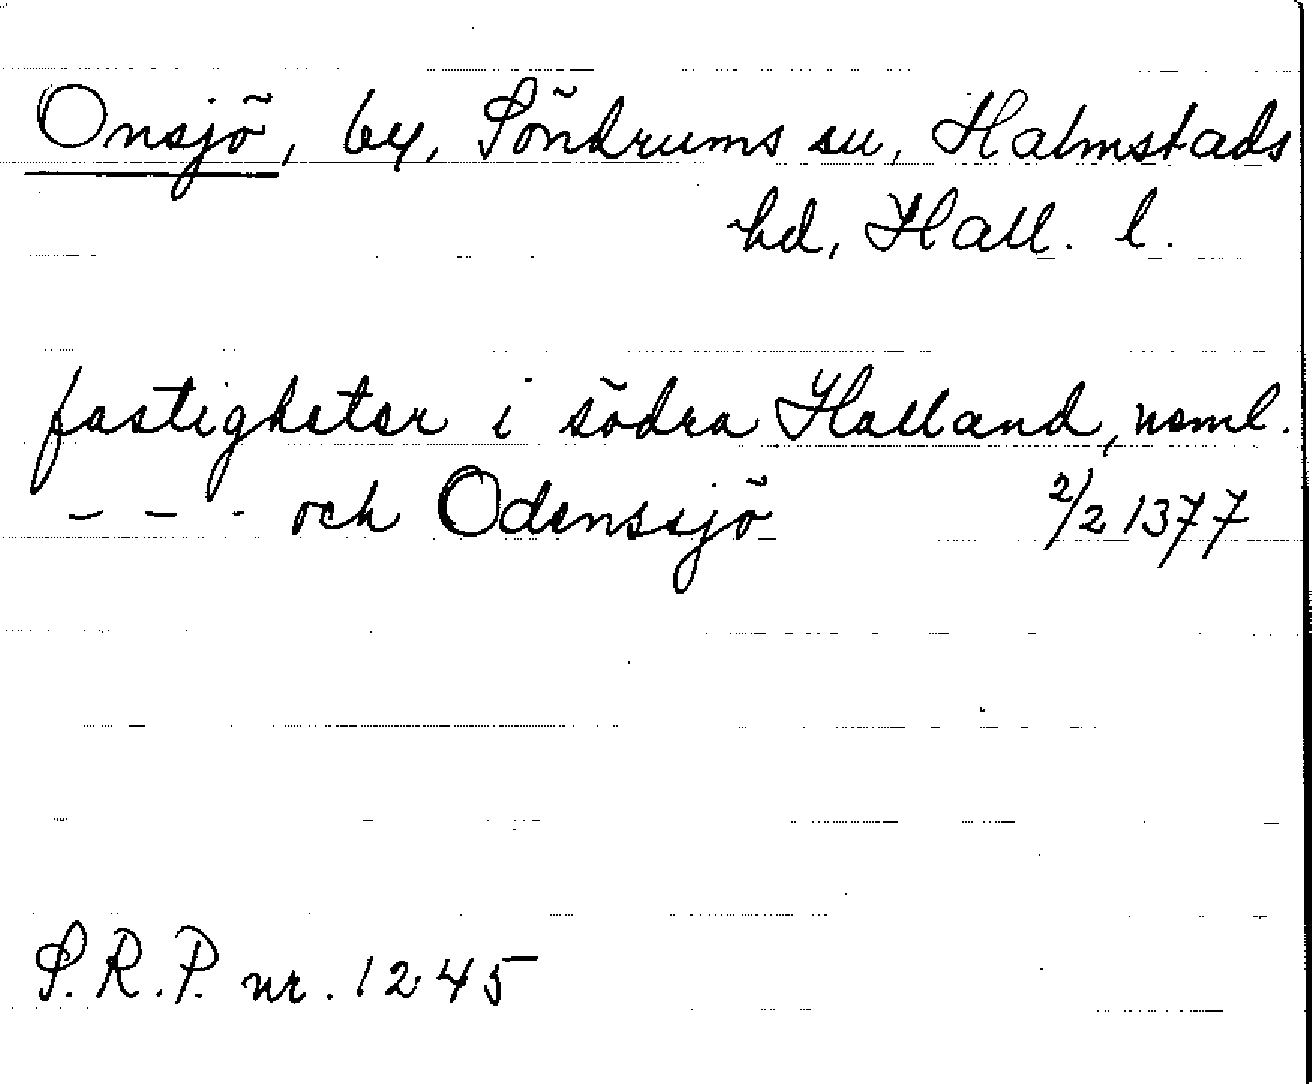 Onsjö, by, Söndrums sn, Halmstads
hd, Hall. l.
fastigheter i södra Halland, neml.
- - - och Odenssjö 2/2 1377
S.R.P. nr. 1245